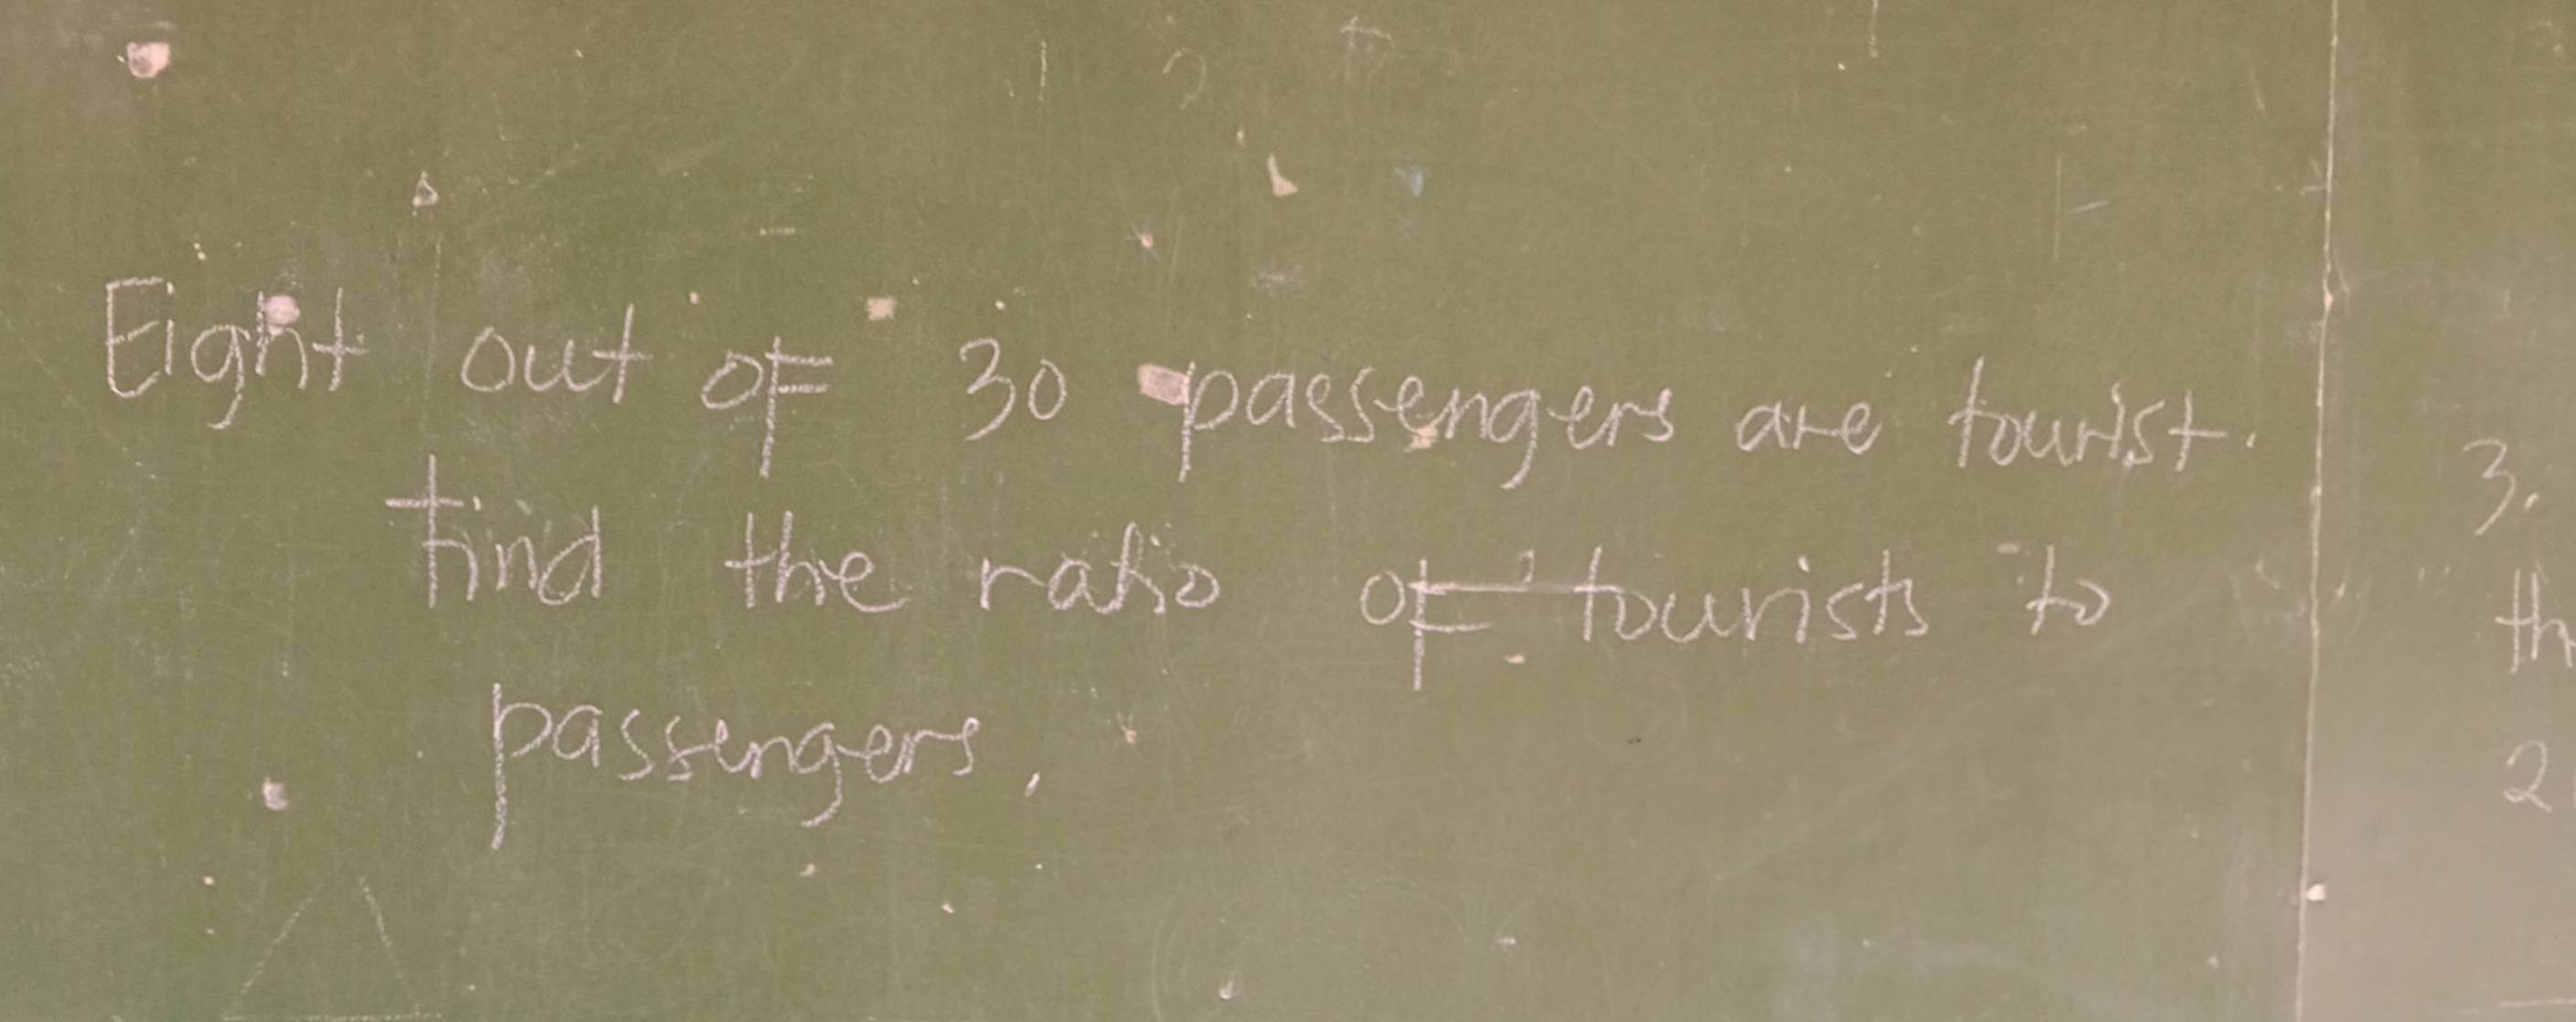 Eight out of 30 passengers are tourist.
find the ratio of tourists to
passengers.
3.
th
2